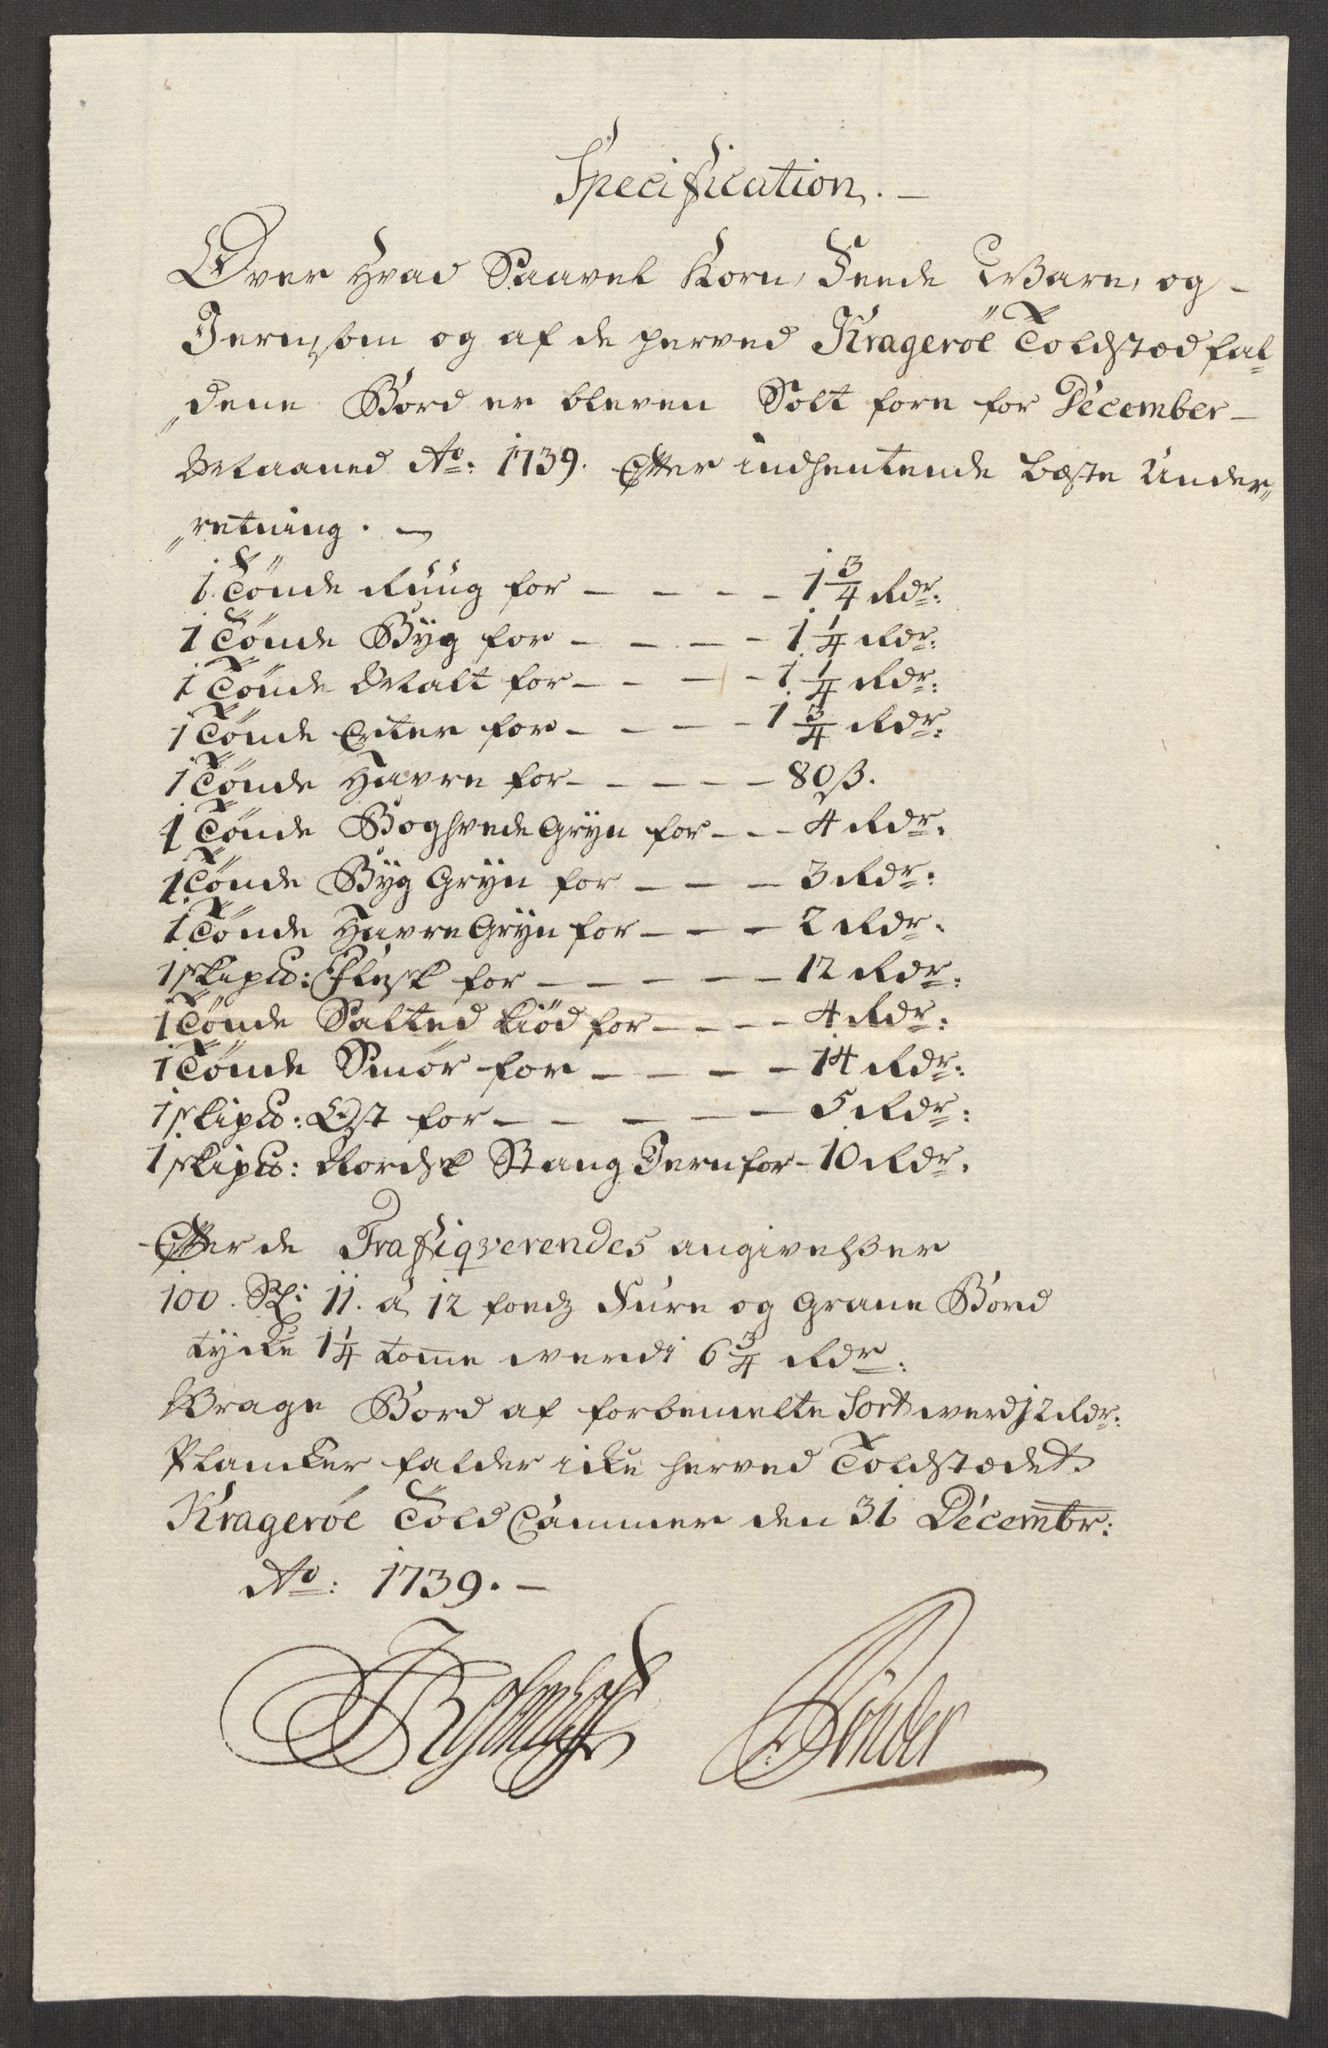 Specification. —
Over Hvad Saavel Korn, Feede Ware, og —
Jern, som og af de herved Krageröe Toldstæd fal-
dene Bord er bleven Solt forn for December —
Maaned Ao: 1739. Efter indhentende beste Under„
„retning. —
1 Tönde Ruug for — — — — 1 3/4 Rdr:
1 Tönde Byg for — — — — 1 1/4 Rdr:
1 Tönde Malt for — — — — 1 1/4 Rdr:
1 Tönde Erter for — — — — 1 3/4 Rdr:
1 Tönde Havre for — — — — 80 ß.
1 Tönde Boghvede Gryn for — — — 4 Rdr.
1 Tönde Byg Gryn for — — — 3 Rdr:
1 Tönde Havre Gryn for — — — 2 Rdr.
1 skipld: Flesk for — — — — — 12 Rdr:
1 Tönde Salted kiöd for — — — — 4 Rdr:
1 Tönde Smör for — — — — 14 Rdr:
1 skipld: Ost for — — — — — 5 Rdr:
1 skipld: Nordsk Stang Jern for — 10 Rdr.
Efter de Trafiqverendes angivelßer
100. St: 11. a 12 foedz Fure og Grane Bord
tycke 1 1/4 tomme werdi 6 3/4 Rdr:
Vrage Bord af forbemelte Sort werdj 2 Rdr:
Plancker falder icke herved Toldstædet.
Krageröe Told Cammer den 31 Decembr:
Ao: 1739. —